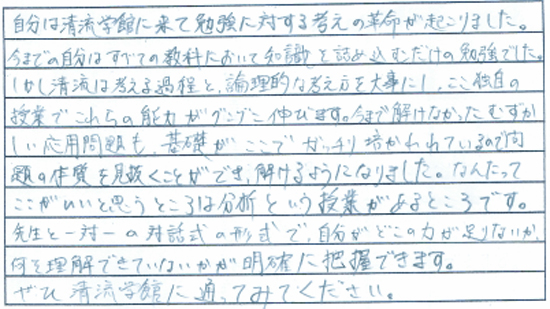 自分は清流学館に来て勉強に対する考えの革命が起こりました。
今までの自分はすべての教科において知識を詰め込むだけの勉強でした。
しかし清流は考える過程と、論理的な考え方を大事にし、ここ独自の
授業でこれらの能力がグングン伸びます。今まで解けなかったむずか
しい応用問題も、基礎がここでガッチリ培かわれているので問
題の本質を見抜くことができ、解けるようになりました。なんたって
ここがいいと思うところは分析という授業があるところです。
先生と一対一の対話式の形式で、自分がどこの力が足りないか、
何を理解できていないかが明確に把握できます。
ぜひ清流学館に通ってみてください。